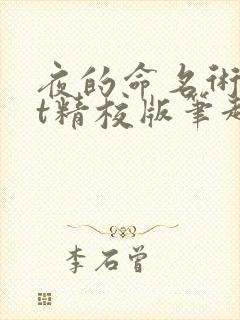 夜的命名術
t精校版筆趣
李石曾